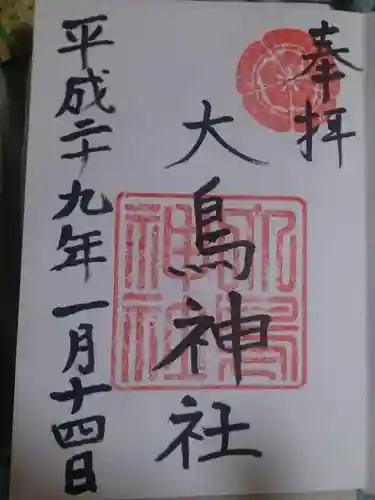 奉拝
大鳥神社
平成二十九年一月十四日